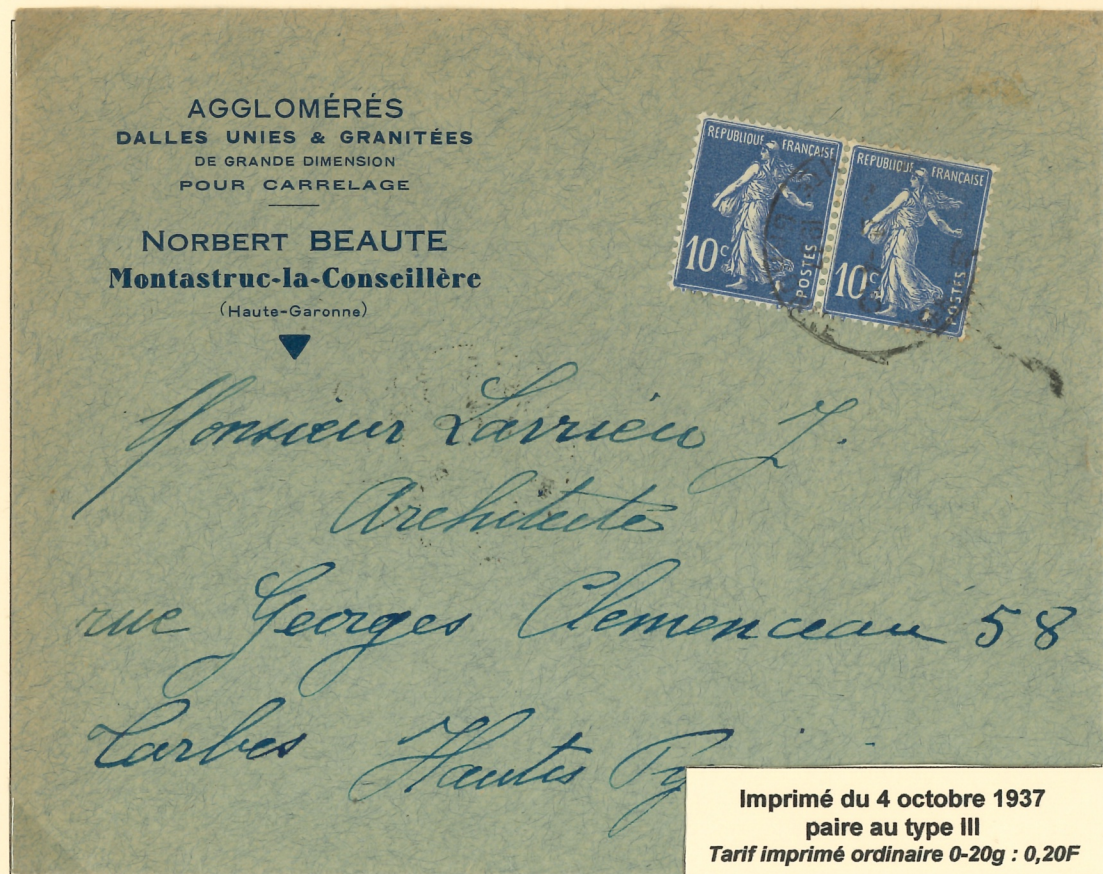 AGGLOMÉRÉS
DALLES UNIES & GRANITÉES
DE GRANDE DIMENSION
POUR CARRELAGE
NORBERT BEAUTE
Montastruc-la-Conseillère
(Haute-Garonne)
REPUBLIQUE FRANÇAISE
10c
POSTES
REPUBLIQUE FRANÇAISE
10c
POSTES
Monsieur Larrieu J.
Architecte
rue Georges Clemenceau 58
Tarbes Hautes Py
Imprimé du 4 octobre 1937
paire au type III
Tarif imprimé ordinaire 0-20g : 0,20F